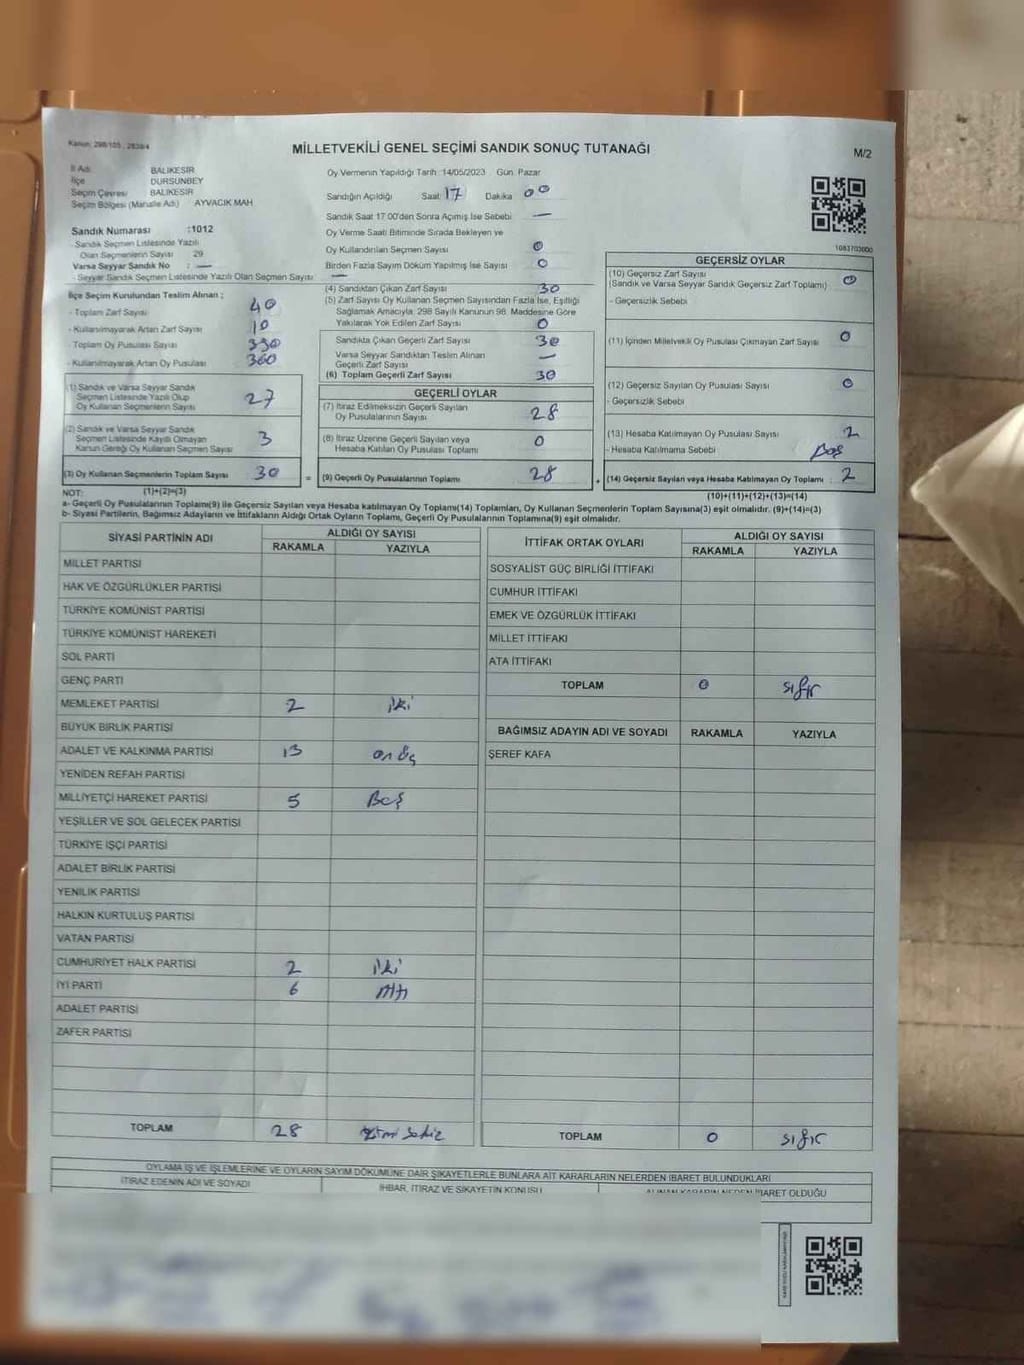 Kanun: 298/105, 2839/4
MİLLETVEKİLİ GENEL SEÇİMİ SANDIK SONUÇ TUTANAĞI
M/2
İl Adı BALIKESİR
İlçe DURSUNBEY
Seçim Çevresi BALIKESİR
Seçim Bölgesi (Mahalle Adı) AYVACIK MAH
Sandık Numarası :1012
Sandık Seçmen Listesinde Yazılı
Olan Seçmenlerin Sayısı 29
Varsa Seyyar Sandık No : —
- Seyyar Sandık Seçmen Listesinde Yazılı Olan Seçmen Sayısı —
Oy Vermenin Yapıldığı Tarih: 14/05/2023 Gün: Pazar
Sandığın Açıldığı Saat 17 Dakika 00
Sandık Saat 17:00'den Sonra Açımış İse Sebebi —
Oy Verme Saati Bitiminde Sırada Bekleyen ve
Oy Kullandırılan Seçmen Sayısı 0
Birden Fazla Sayım Döküm Yapılmış İse Sayısı 0
1083703000
İlçe Seçim Kurulundan Teslim Alınan ;
- Toplam Zarf Sayısı 40
- Kullanılmayarak Artan Zarf Sayısı 10
- Toplam Oy Pusulası Sayısı 390
- Kullanılmayarak Artan Oy Pusulası 360
(1) Sandık ve Varsa Seyyar Sandık
Seçmen Listesinde Yazılı Olup
Oy Kullanan Seçmenlerin Sayısı 27
(2) Sandık ve Varsa Seyyar Sandık
Seçmen Listesinde Kayıtlı Olmayan
Kanun Gereği Oy Kullanan Seçmen Sayısı 3
(3) Oy Kullanan Seçmenlerin Toplam Sayısı 30
(4) Sandıktan Çıkan Zarf Sayısı 30
(5) Zarf Sayısı Oy Kullanan Seçmen Sayısından Fazla İse, Eşitliği
Sağlamak Amacıyla; 298 Sayılı Kanunun 98. Maddesine Göre
Yakılarak Yok Edilen Zarf Sayısı 0
Sandıkta Çıkan Geçerli Zarf Sayısı 30
Varsa Seyyar Sandıktan Teslim Alınan
Geçerli Zarf Sayısı —
(6) Toplam Geçerli Zarf Sayısı 30
GEÇERLİ OYLAR
(7) İtiraz Edilmeksizin Geçerli Sayılan
Oy Pusulalarının Sayısı 28
(8) İtiraz Üzerine Geçerli Sayılan veya
Hesaba Katılan Oy Pusulası Toplamı 0
= (9) Geçerli Oy Pusulalarının Toplamı 28 +
GEÇERSİZ OYLAR
(10) Geçersiz Zarf Sayısı
(Sandık ve Varsa Seyyar Sandık Geçersiz Zarf Toplamı) 0
- Geçersizlik Sebebi
(11) İçinden Milletvekili Oy Pusulası Çıkmayan Zarf Sayısı 0
(12) Geçersiz Sayılan Oy Pusulası Sayısı 0
- Geçersizlik Sebebi
(13) Hesaba Katılmayan Oy Pusulası Sayısı 2
- Hesaba Katılmama Sebebi Boş
(14) Geçersiz Sayılan veya Hesaba Katılmayan Oy Toplamı : 2
NOT: (1)+(2)=(3)
(10)+(11)+(12)+(13)=(14)
a- Geçerli Oy Pusulalarının Toplamı(9) ile Geçersiz Sayılan veya Hesaba katılmayan Oy Toplamı(14) Toplamları, Oy Kullanan Seçmenlerin Toplam Sayısına(3) eşit olmalıdır. (9)+(14)=(3)
b- Siyasi Partilerin, Bağımsız Adayların ve İttifakların Aldığı Ortak Oyların Toplamı, Geçerli Oy Pusulalarının Toplamına(9) eşit olmalıdır.
SİYASİ PARTİNİN ADI ALDIĞI OY SAYISI
RAKAMLA YAZIYLA
MİLLET PARTİSİ
HAK VE ÖZGÜRLÜKLER PARTİSİ
TÜRKİYE KOMÜNİST PARTİSİ
TÜRKİYE KOMÜNİST HAREKETİ
SOL PARTİ
GENÇ PARTİ
MEMLEKET PARTİSİ 2 iki
BÜYÜK BİRLİK PARTİSİ
ADALET VE KALKINMA PARTİSİ 13 on üç
YENİDEN REFAH PARTİSİ
MİLLİYETÇİ HAREKET PARTİSİ 5 Beş
YEŞİLLER VE SOL GELECEK PARTİSİ
TÜRKİYE İŞÇİ PARTİSİ
ADALET BİRLİK PARTİSİ
YENİLİK PARTİSİ
HALKIN KURTULUŞ PARTİSİ
VATAN PARTİSİ
CUMHURİYET HALK PARTİSİ 2 iki
İYİ PARTİ 6 Altı
ADALET PARTİSİ
ZAFER PARTİSİ
TOPLAM 28 yirmi sekiz
İTTİFAK ORTAK OYLARI ALDIĞI OY SAYISI
RAKAMLA YAZIYLA
SOSYALİST GÜÇ BİRLİĞİ İTTİFAKI
CUMHUR İTTİFAKI
EMEK VE ÖZGÜRLÜK İTTİFAKI
MİLLET İTTİFAKI
ATA İTTİFAKI
TOPLAM 0 sıfır
BAĞIMSIZ ADAYIN ADI VE SOYADI RAKAMLA YAZIYLA
ŞEREF KAFA
TOPLAM 0 sıfır
OYLAMA İŞ VE İŞLEMLERİNE VE OYLARIN SAYIM DÖKÜMÜNE DAİR ŞİKAYETLERLE BUNLARA AİT KARARLARIN NELERDEN İBARET BULUNDUKLARI
İTİRAZ EDENİN ADI VE SOYADI İHBAR, İTİRAZ VE ŞİKAYETİN KONUSU ALINAN KARARIN NEDEN İBARET OLDUĞU